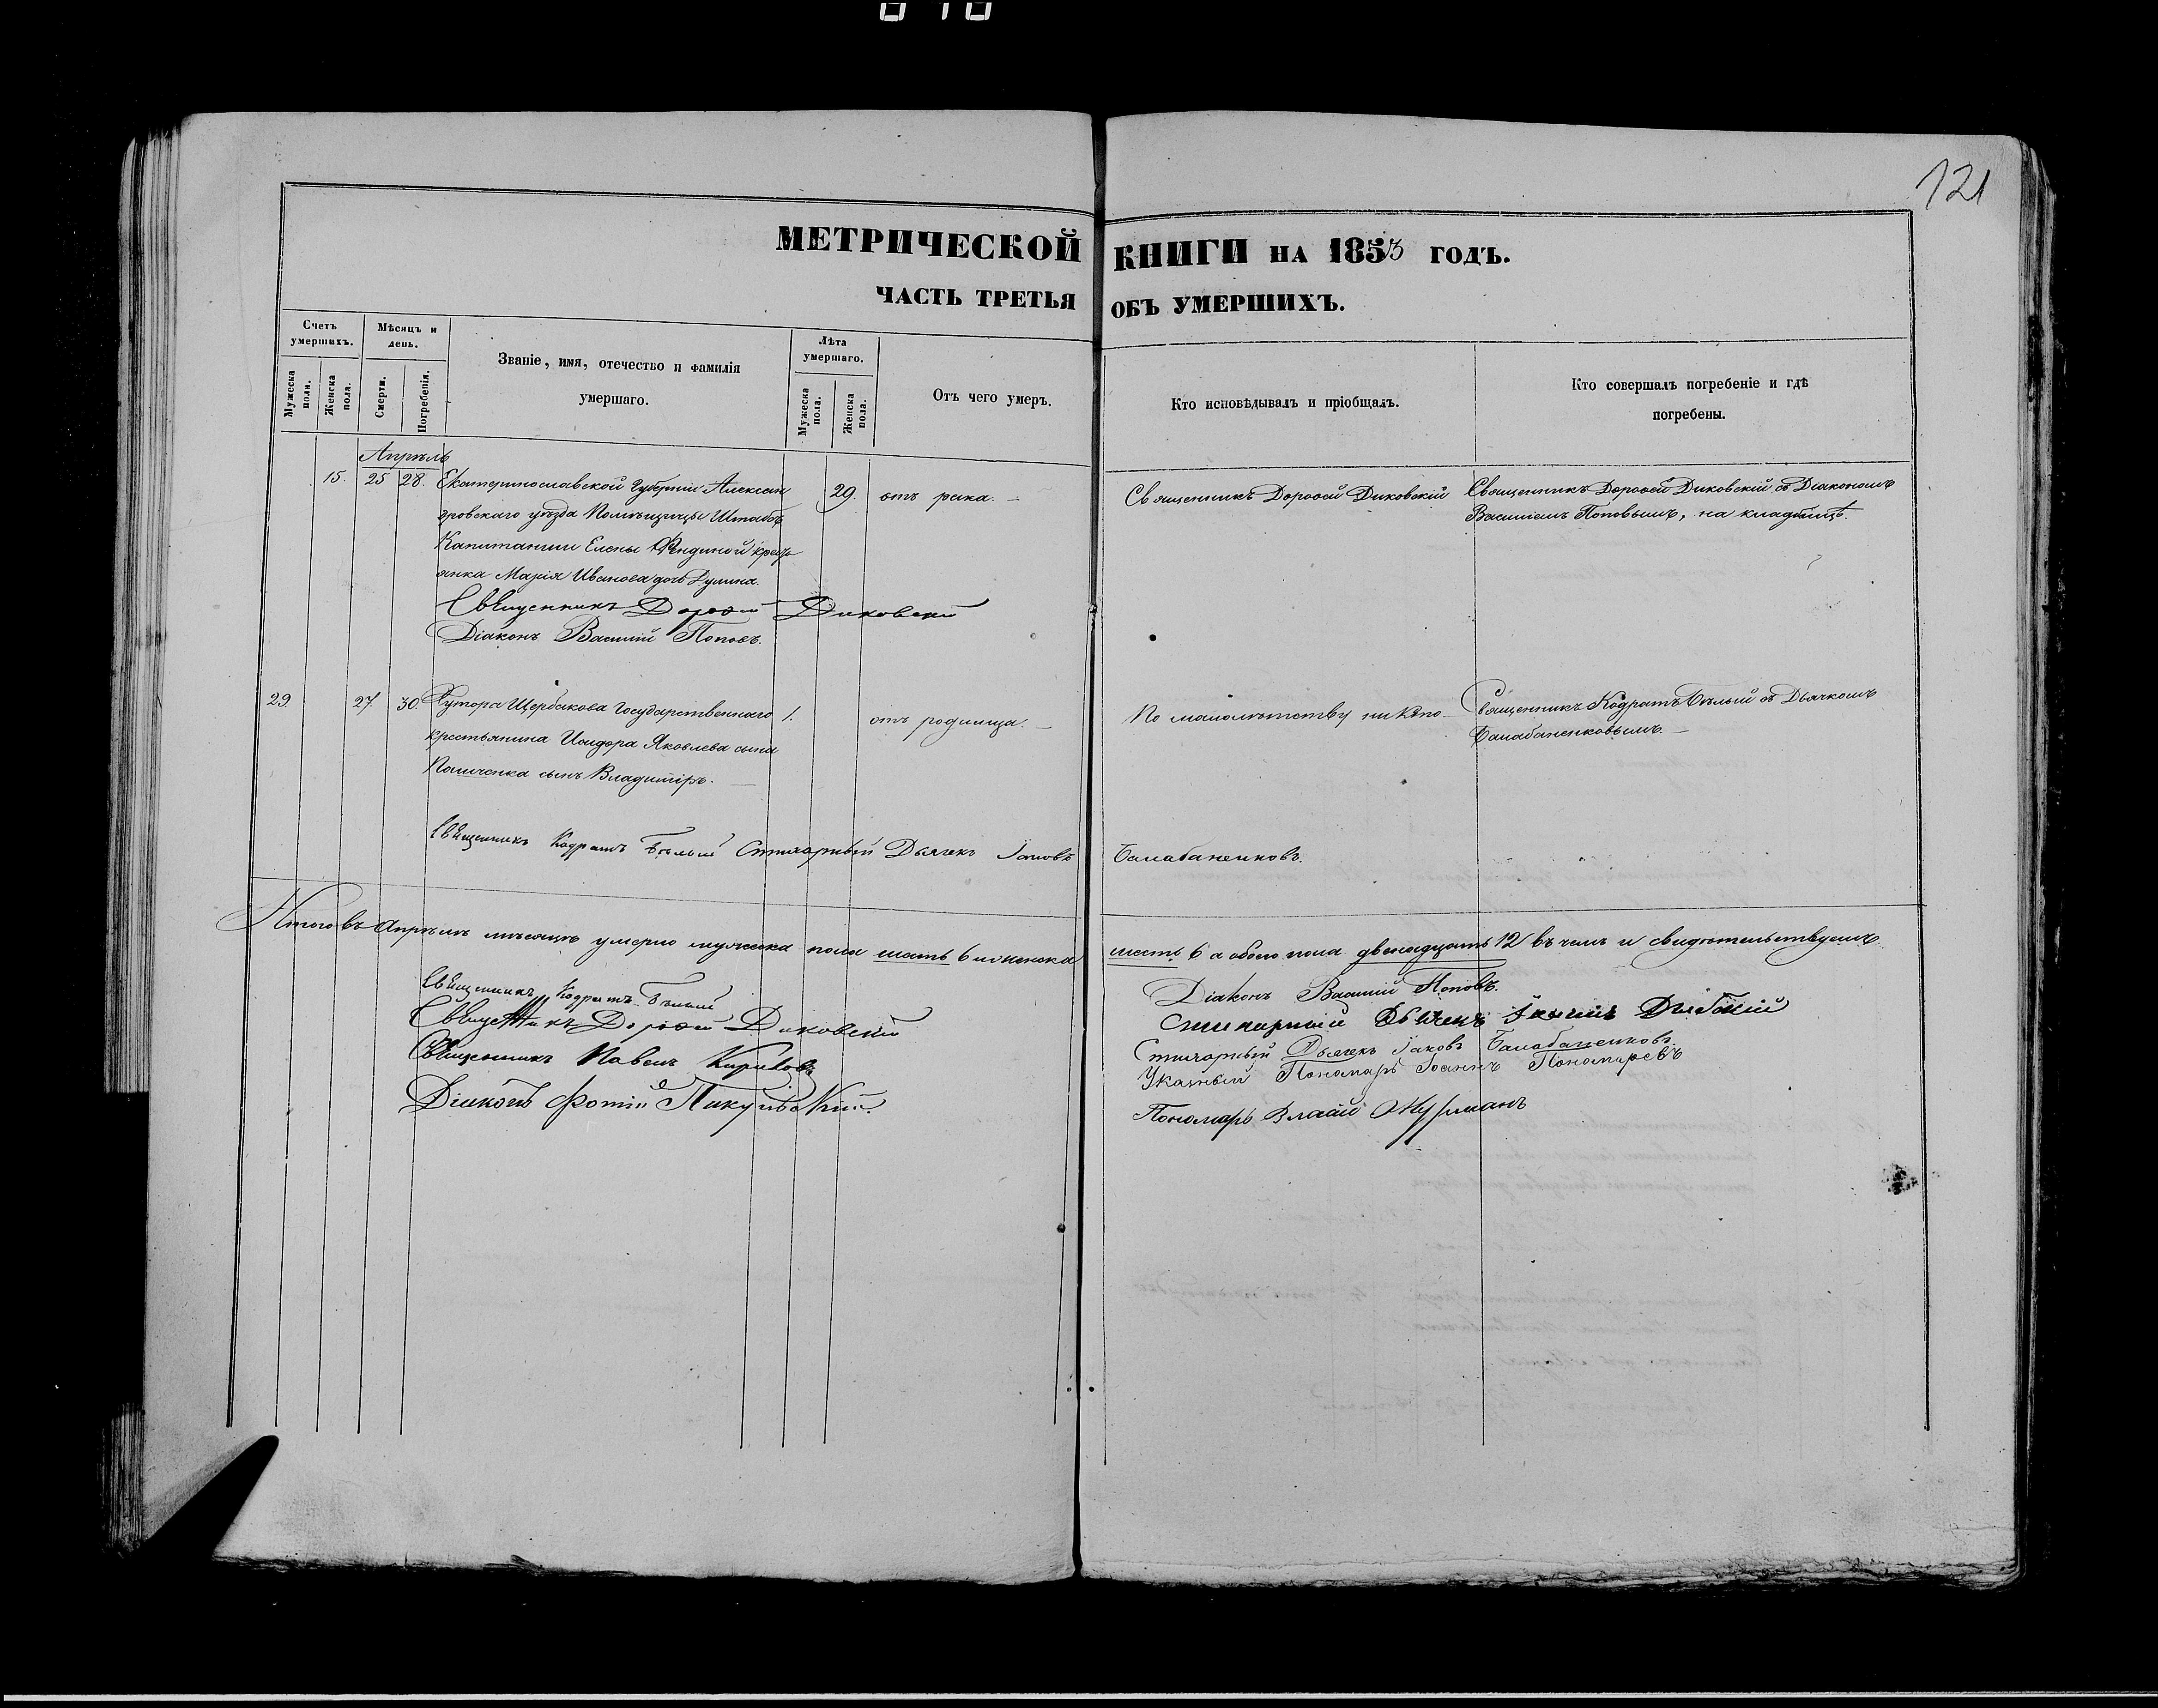 121
МЕТРИЧЕСКОЙ КНИГИ НА 1853 ГОДЪ.
ЧАСТЬ ТРЕТЬЯ ОБЪ УМЕРШИХЪ.
Счетъ умершихъ.
Мужеска пола.
Женска пола.
Мѣсяцъ и день.
Смерти.
Погребенія.
Званіе, имя, отечество и фамилія
умершаго.
Лѣта умершаго.
Мужеска пола.
Женска пола.
Отъ чего умеръ.
Кто исповѣдывалъ и пріобщалъ.
Кто совершалъ погребеніе и гдѣ
погребены.
Апрѣль
15. 25 28. Екатеринославской Губерніи Алексан 29. отъ рака. Священникъ Дорофей Диковскій Священникъ Дорофей Диковскій съ Діакономъ
дровскаго уѣзда Помѣщицы Штабсъ Василіемъ Поповымъ, на кладбищѣ.
Капитанши Елены крест
янка Марія Иванова дочь Дулина.
Священникъ Дорофей Диковскій
Діаконъ Василій Поповъ.
29. 27. 30. Хутора Щербакова Государственнаго 1. отъ родимца. По малолѣтству никто Священникъ Кодратъ Бѣлый съ Дьячкомъ
крестьянина Исидора Яковлева сына Балабаненковымъ.
сынъ Владиміръ.
Священникъ Кодратъ Бѣлый Стихарный Дьячекъ Іаковъ Балабаненковъ.
Итого въ Апрѣлѣ мѣсяцѣ умерло мужеска пола шесть 6 женска шесть 6 а обоего пола двенадцать 12 въ чемъ и свидѣтельствуемъ
Священникъ Кодратъ Бѣлый
Священникъ Дорофей Диковскій
Священникъ Павелъ
Діаконъ Фотій
Діаконъ Василій Поповъ.
Стихарный Дьячекъ
Стихарный Дьячекъ Іаковъ Балабаненковъ.
Указный Пономарь Іоаннъ Пономаревъ
Пономарь Власій